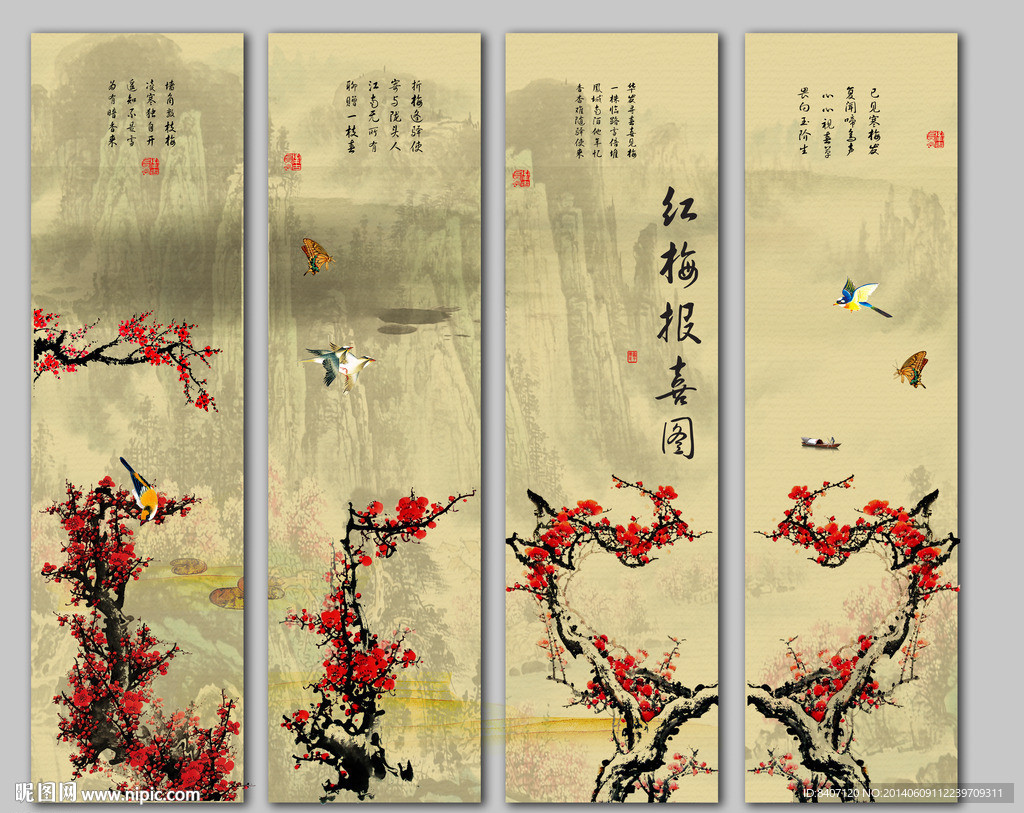 墙角数枝梅
凌寒独自开
遥知不是雪
为有暗香来
折梅逢驿使
寄与陇头人
江南无所有
聊赠一枝春
华发寻春喜见梅
一株临路雪倍堆
凤城南陌他年忆
香杳难随驿使来
红梅报喜图
已见寒梅发
复闻啼鸟声
心心视春草
畏向玉阶生
昵图网 www.nipic.com
ID:8407120 NO:20140609112239709311